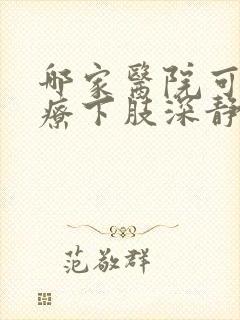 哪家醫院可
療下肢深靜
范敬群